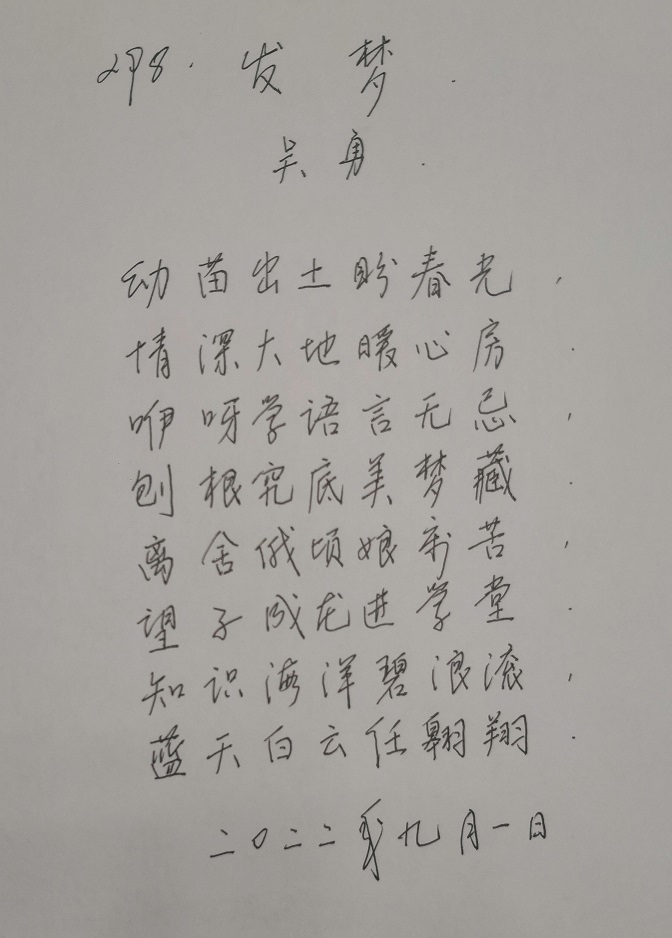 298. 发梦.
吴勇.
幼苗出土盼春光,
情深大地暖心房.
咿呀学语言无忌,
刨根究底美梦藏.
离舍俄顷娘亲苦,
望子成龙进学堂.
知识海洋碧浪滚,
蓝天白云任翱翔.
二〇二二年九月一日